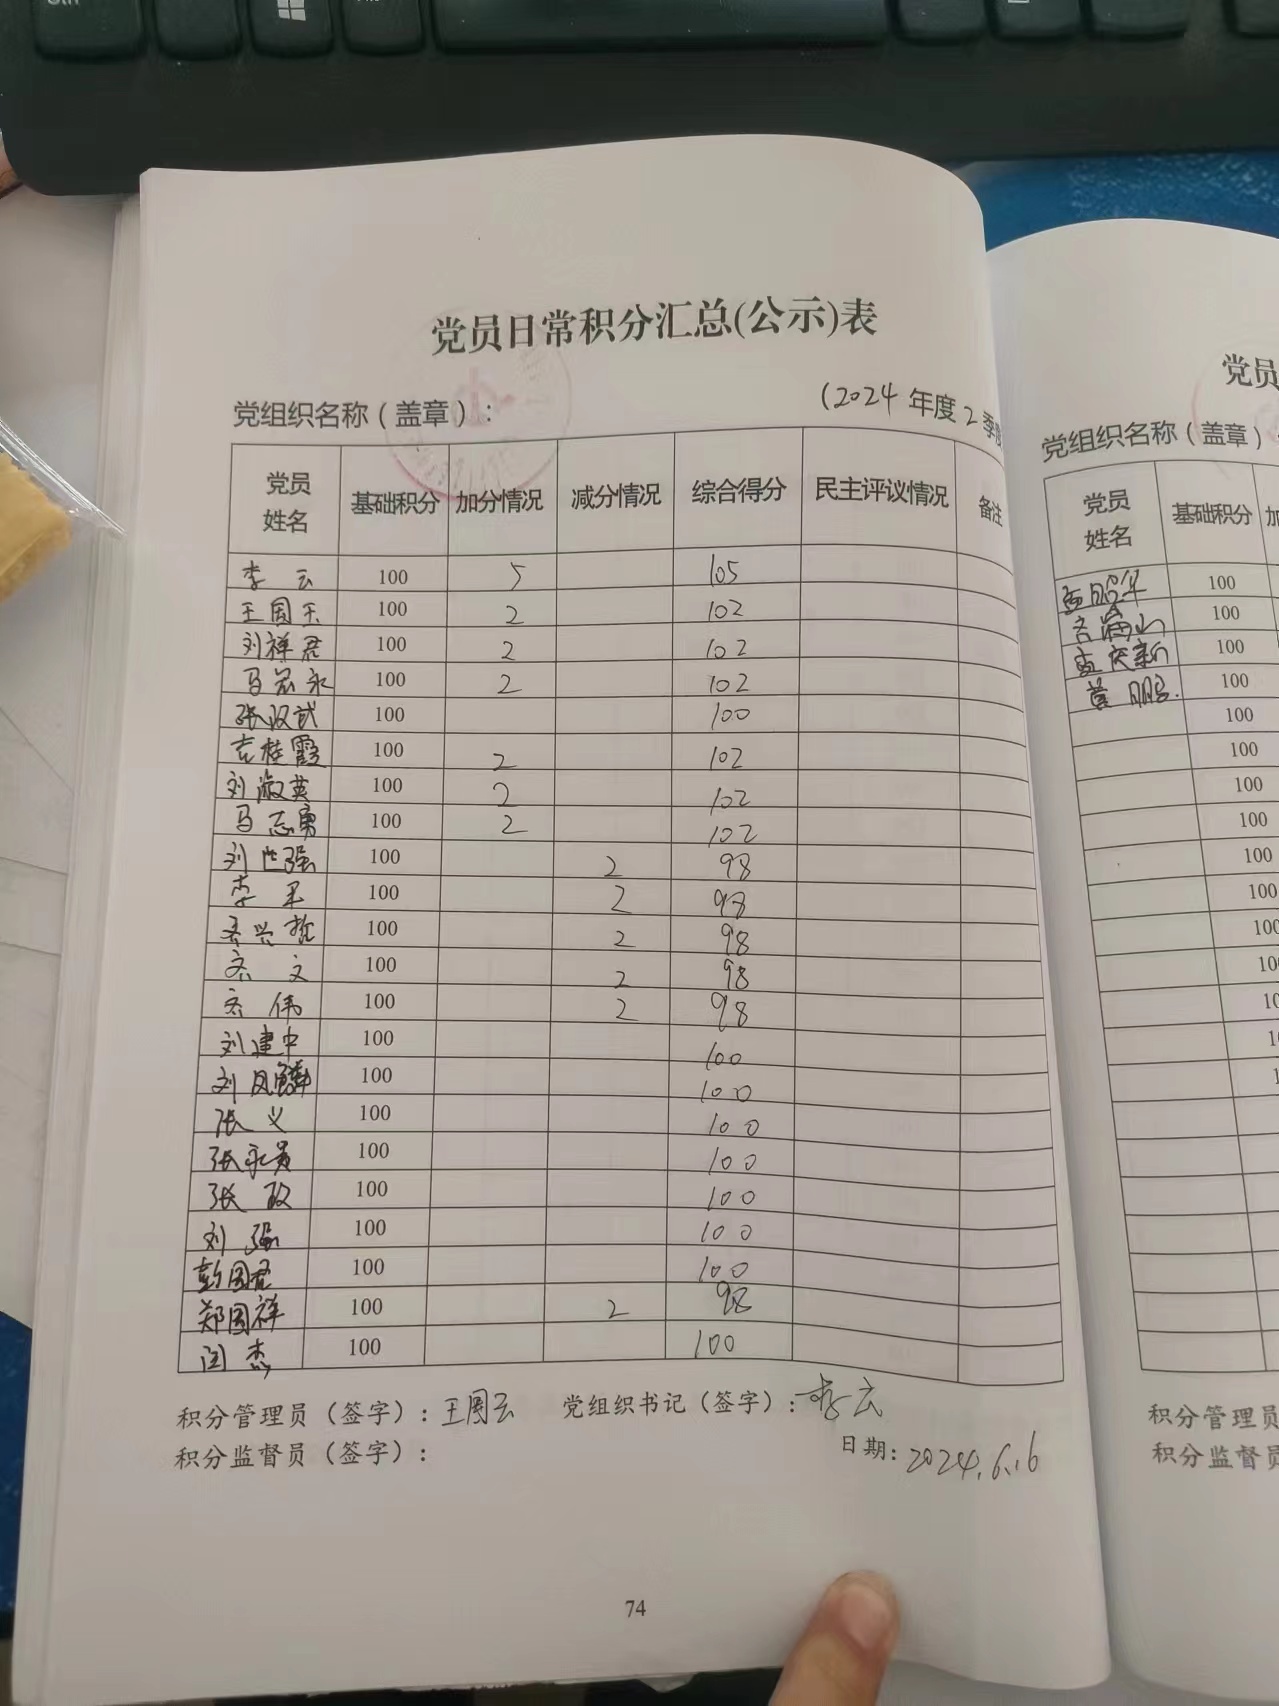 党员日常积分汇总(公示)表
党组织名称（盖章）：
（2024年度2季度
党员姓名 基础积分 加分情况 减分情况 综合得分 民主评议情况 备注
李云 100 5 105
王国乐 100 2 102
刘祥君 100 2 102
马宏永 100 2 102
张汉武 100 100
袁桂霞 100 2 102
刘淑英 100 2 102
马志勇 100 2 102
刘世强 100 2 98
李 100 2 98
齐兴哲 100 2 98
齐文 100 2 98
齐伟 100 2 98
刘建中 100 100
刘凤麟 100 100
张义 100 100
张永贵 100 100
张政 100 100
刘强 100 100
彭国君 100 100
郑国祥 100 2 98
闫杰 100 100
积分管理员（签字）：王国云 党组织书记（签字）：李云
积分监督员（签字）：
日期：2024.6.16
74
党员
党组织名称（盖章）
党员姓名 基础积分 加
孟昭华 100
齐满山 100
孟庆新 100
曾鹏 100
100
100
100
100
100
100
100
积分管理员
积分监督员